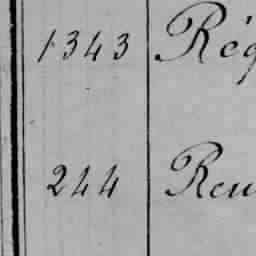 1343 Rég
244 Ren